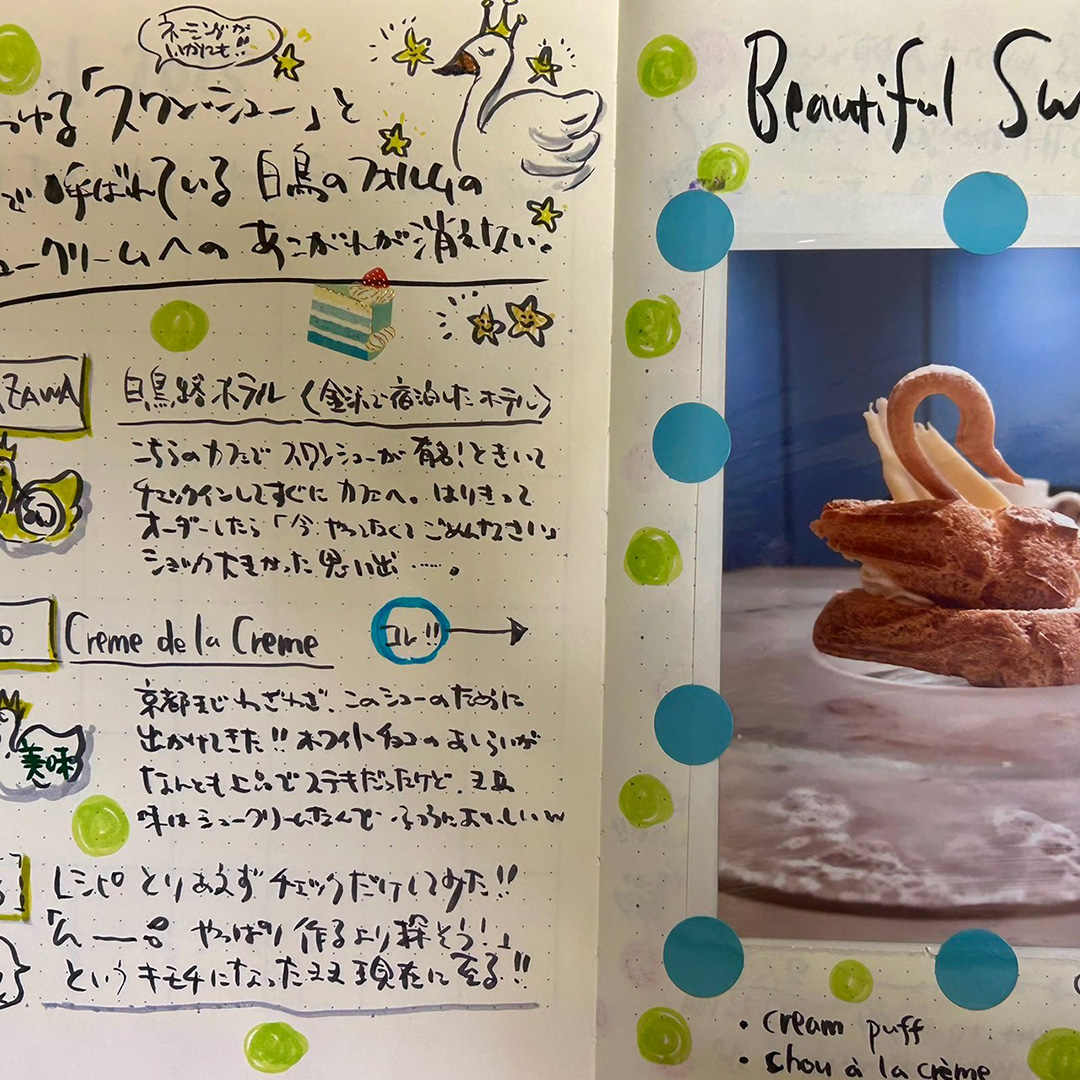 ネーミングが
いかにも!!
ゆる「スワンシュー」と
で呼ばれている白鳥のフォルムの
ュークリームへのあこがれが消えない。
ZAWA
白鳥路ホテル(金沢で宿泊したホテル)
こちらのカフェでスワンシューが有名!ときいて
チェックインしてすぐにカフェへ。はりきって
オーダーしたら「今やってなくてごめんなさい」
ショック大きかった思い出……。
O
Creme de la Creme
コレ!!
京都までわざわざ、このシューのために
出かけてきた!!ホワイトチョコのあしらいが
なんとも上品でステキだったけど、
味はシュークリームなんで、ふつうにおいしいw
美味
レシピとりあえずチェックだけしてみた!!
「んーー。やっぱり作るより探そう!」
というキモチになったまま現在に至る!!
Beautiful Sw
・cream puff
・chou à la crème